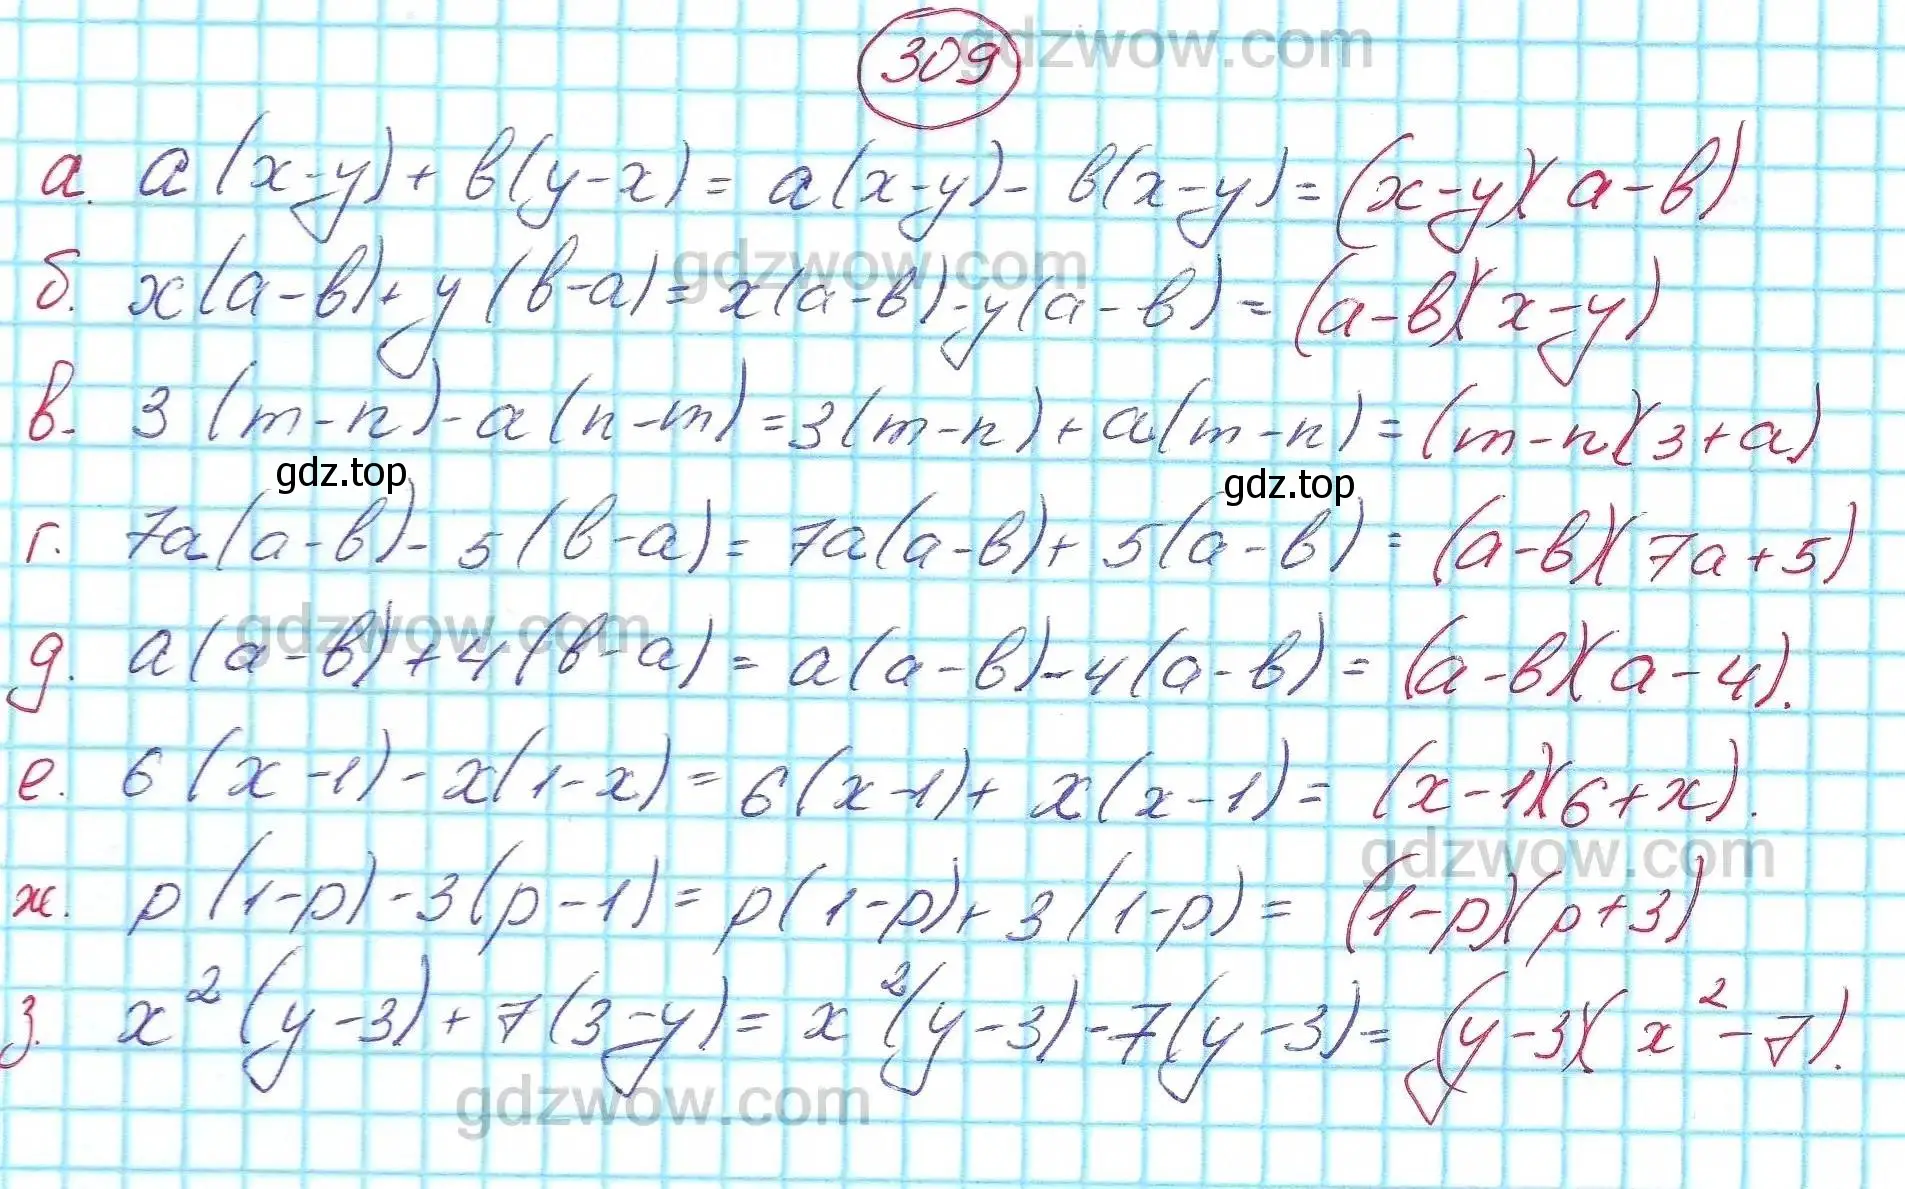 309
gdzwow.com
а. a(x-y)+b(y-x)=a(x-y)-b(x-y)=(x-y)(a-b)
gdzwow.com
б. x(a-b)+y(b-a)=x(a-b)-y(a-b)=(a-b)(x-y)
в. 3(m-n)-a(n-m)=3(m-n)+a(m-n)=(m-n)(3+a)
gdz.top gdz.top
г. 7a(a-b)-5(b-a)=7a(a-b)+5(a-b)=(a-b)(7a+5)
gdzwow.com
д. a(a-b)+4(b-a)=a(a-b)-4(a-b)=(a-b)(a-4).
е. 6(x-1)-x(1-x)=6(x-1)+x(x-1)=(x-1)(6+x).
gdzwow.com
ж. p(1-p)-3(p-1)=p(1-p)+3(1-p)=(1-p)(p+3)
з. x²(y-3)+7(3-y)=x²(y-3)-7(y-3)=(y-3)(x²-7).
gdzwow.com